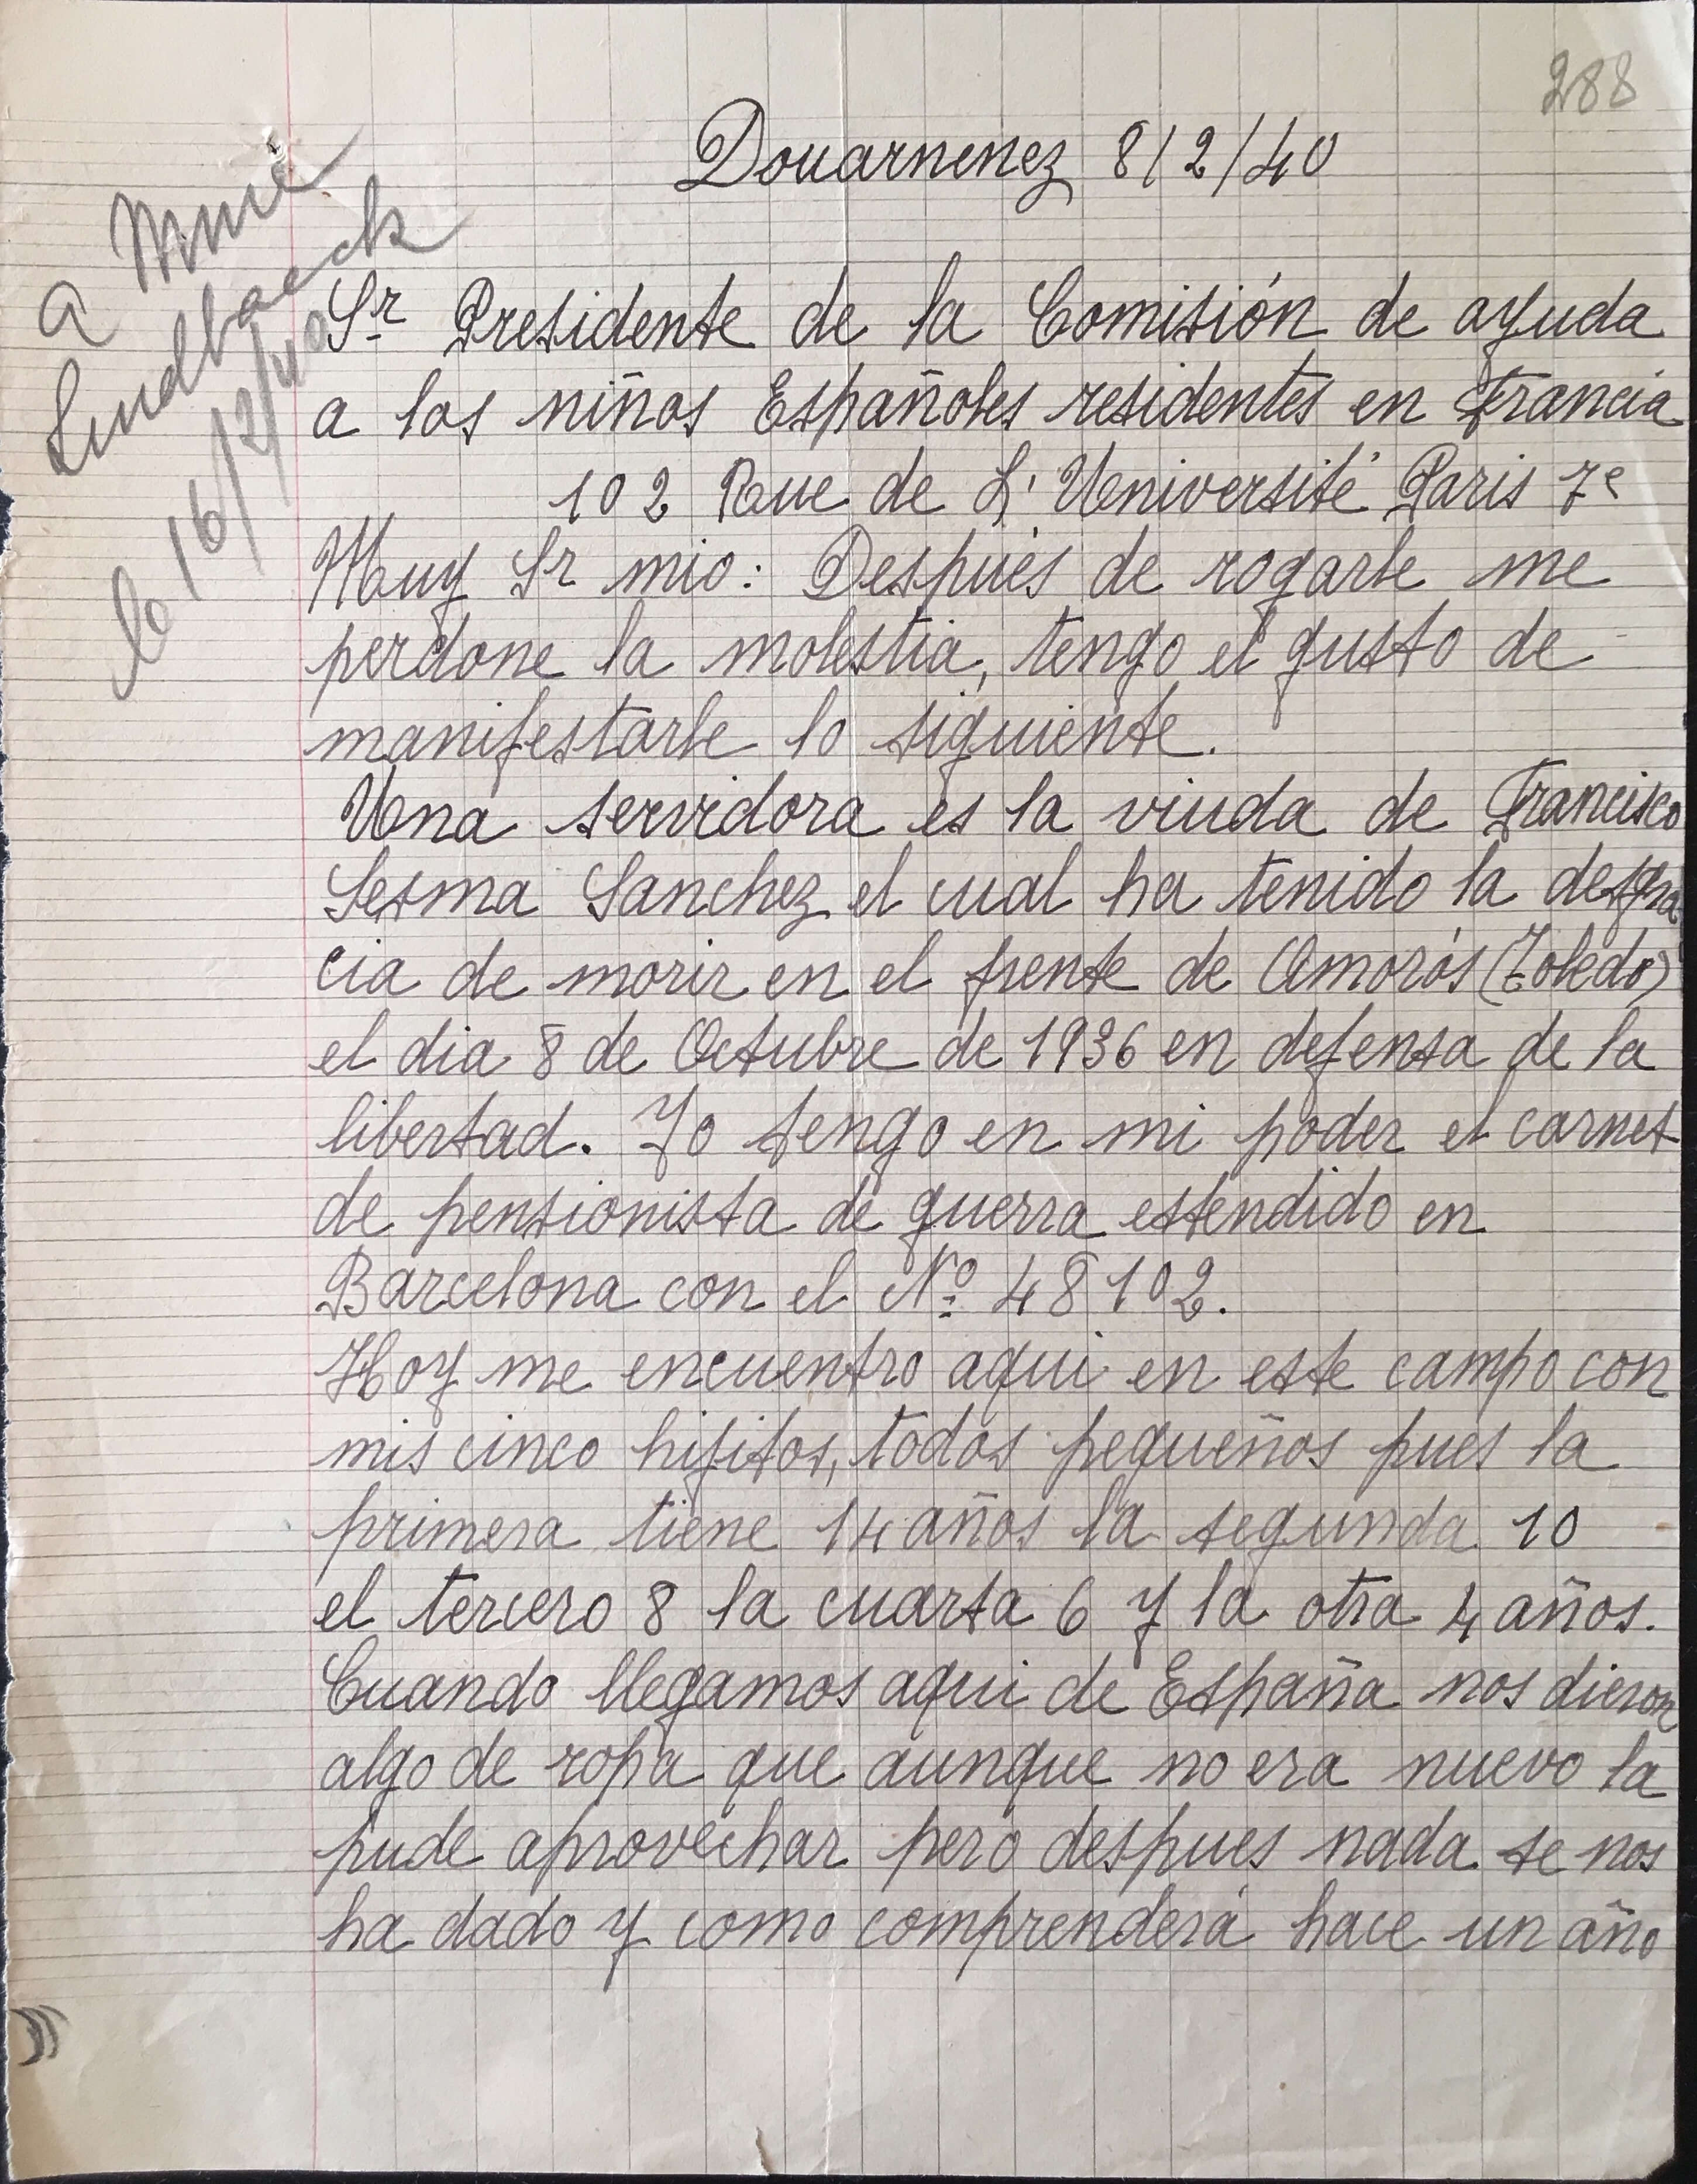 288
Douarnenez 8/2/40
a Mme
Lindbaeck
le 16/2/40
Sr Presidente de la Comisión de ayuda
a los niños Españoles residentes en Francia
102 Rue de L'Université Paris 7e
Muy Sr mio: Después de rogarle me
perdone la molestia, tengo el gusto de
manifestarle lo siguiente.
Una servidora es la viuda de Francisco
Sesma Sanchez el cual ha tenido la desgra
cia de morir en el frente de Amorós (Toledo)
el dia 8 de Octubre de 1936 en defensa de la
libertad. Yo tengo en mi poder el carnet
de pensionista de guerra estendido en
Barcelona con el Nº 48102.
Hoy me encuentro aqui en este campo con
mis cinco hijitos, todos pequeños pues la
primera tiene 14 años la segunda 10
el tercero 8 la cuarta 6 y la otra 4 años.
Cuando llegamos aqui de España nos dieron
algo de ropa que aunque no era nuevo la
pude aprovechar pero despues nada se nos
ha dado y como comprenderá hace un año